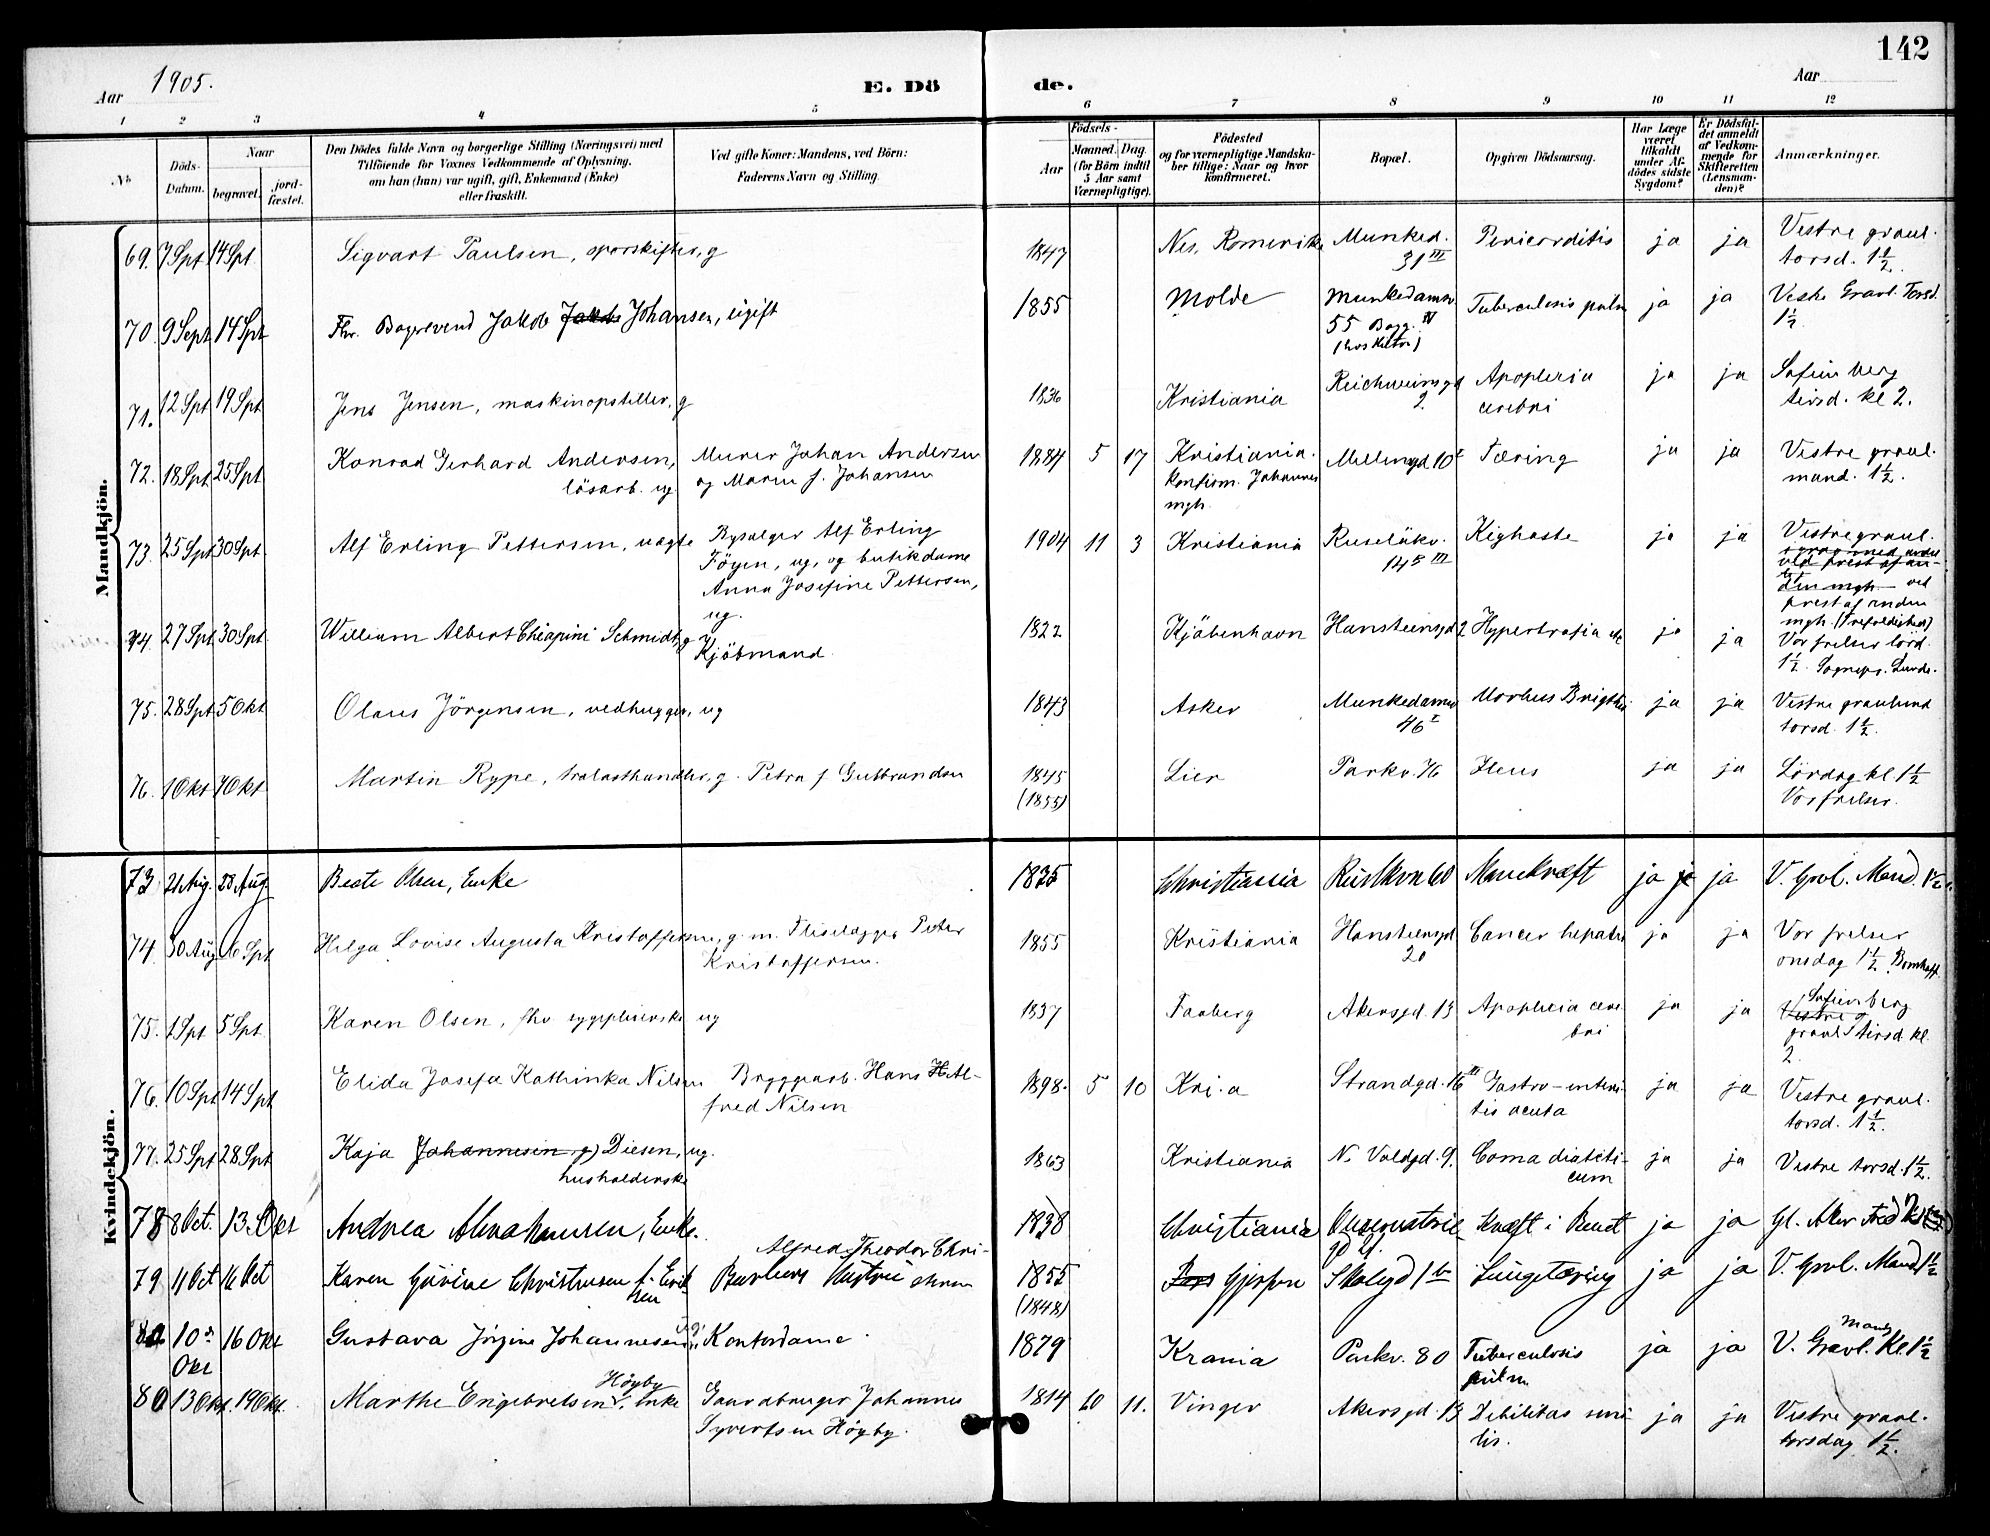 142
Aar 1905.
E. Dö
de.
Aar
1 2 3 4 5 6 7 8 9 10 11 12
No.
Döds-Datum.
Naar
begravet.
jord-fæstet.
Den Dödes fulde Navn og borgerlige Stilling (Næringsvei) med
Tilföiende for Voxnes Vedkommende af Oplysning,
om han (hun) var ugift, gift, Enkemand (Enke)
eller fraskilt.
Ved gifte Koner: Mandens, ved Börn:
Faderens Navn og Stilling.
Födsels-
Aar
Maaned. Dag
(for Börn indtil
5 Aar samt
Værnepligtige).
Födested
og for værnepligtige Mandska-
ber tillige: Naar og hvor
konfirmeret.
Bopæl.
Opgiven Dödsaarsag.
Har Læge
været
tilkaldt
under Af-
dödes sidste
Sygdom?
Er Dödsfal-
det anmeldt
af Vedkom-
mende for
Skifteretten
(Lensman-
den)?
Anmærkninger.
Mandkjön.
69. 7 Spt 14 Spt Sigvart Paulsen, sporskifter, g 1847 Nes, Romerike Munked. 31 III Pericarditis ja ja Vestre gravl. torsd. 1½.
70. 9 Sept 14 Spt Fhv. Jakob Jakob Johansen, ugift 1855 Molde Munkedamsv 55 Bagg. IV Tuberculosis pulm ja ja Vestre Gravl. Torsd. 1½
71. 12 Spt 19 Spt Jens Jensen, maskinopstiller, g 1836 Kristiania Reichweinsgd 2. Apoplexia cerebri ja ja Sofienberg tirsd. kl 2.
72. 18 Spt 25 Spt Konrad Gerhard Andersen, lösarb. ug. Murer Johan Andersen og Maren f. Johansen 1884 5 17 Kristiania. Konfirm. Johannes mgh. Mellemgd. 10 I Tæring ja ja Vestre gravl. mand. 1½.
73. 25 Spt 30 Spt Alf Erling Pettersen, uægte Bysælger Alf Erling Föyen, ug, og butikdame Anna Josefine Pettersen, ug. 1904 11 3 Kristiania Ruselökv. 14 III Kighoste ja ja Vestre gravl. ved prest af anden mgh. (Trefoldighed)
74. 27 Spt 30 Spt William Albert Chiapini Schmidt, g Kjöbmand. 1822 Kjöbenhavn Hansteensgd 2 Hypertrofia ja ja Vor frelser lörd. 1½. Sogneps. Lunde.
75. 28 Spt 5 Okt Olaus Jörgensen, vedhugger, ug 1843 Asker Munkedamsv 46 I Morbus Brigthii ja ja Vestre gravlund torsd. 1½.
76. 1 Okt 7 Okt Martin Rype, trælasthandler, g. Petra f Gulbrandsen 1845 (1855) Lier Parkv. 76 Ileus ja ja Lördag kl 1½ Vor frelser.
Kvindekjön.
73 21 Aug. 28 Aug. Beate Olsen, Enke 1835 Christiania Ruslökvn 60 Marekræft ja ja V. Gravl. Mand. 1½.
74. 30 Aug 6 Spt Helga Lovise Augusta Kristoffersen, g. m. Fliselægger Peter Kristoffersen. 1855 Kristiania Hansteensgd 20 Cancer hepatis ja ja Vor frelser onsdag 1½
75. 1 Spt 5 Spt Karen Olsen, fhv sypleierske ug 1837 Faaberg Akersgd. 13 Apoplexia cerebri ja ja Vestre Sofienberg gravl tirsd. kl. 2.
76. 10 Spt 14 Spt Elida Josefa Kathinka Nilsen Bryggearb. Hans Alfred Nilsen 1898. 5 10 Kri.a Strandgd. 16 III Gastro-enteritis acuta ja ja Vestre gravl. torsd. 1½.
77. 25 Spt 28 Spt Kaja (Johannesen g) Diesen, ug. husholderske 1863 Kristiania N. Voldgd. 9. Coma diabeticum ja ja Vestre torsd. 1½.
78 8 Oct. 13. Okt Andrea Abrahamsen, Enke. 1838 Christiania Observatorie Kræft i Brust ja ja Gl. Aker
79 11 Oct 16 Oct Karen Gurine Christensen f. Eriksen Barbers Hustru Alfred Theodor Christensen 1855 (1848) Gjerpen Skolegd 1 b Lungetæring ja ja V. Gravl. Mand 1½
80 10 Okt 16 Okt Gustava Jörgine Johannesen ug: Kontordame. 1879 Krania Parkv. 80 Tuberculosis pulm ja ja V. Gravl. Mand Kl. 1½
80 13 Okt. 19 Okt. Marthe Engebretsen Högby. enke Gaardbruger Johannes Syvertsen Högby. 1814 10 11. Vinger Akersgd. 13 Debilitas senilis. ja ja Vestre gravl. torsdag 1½.